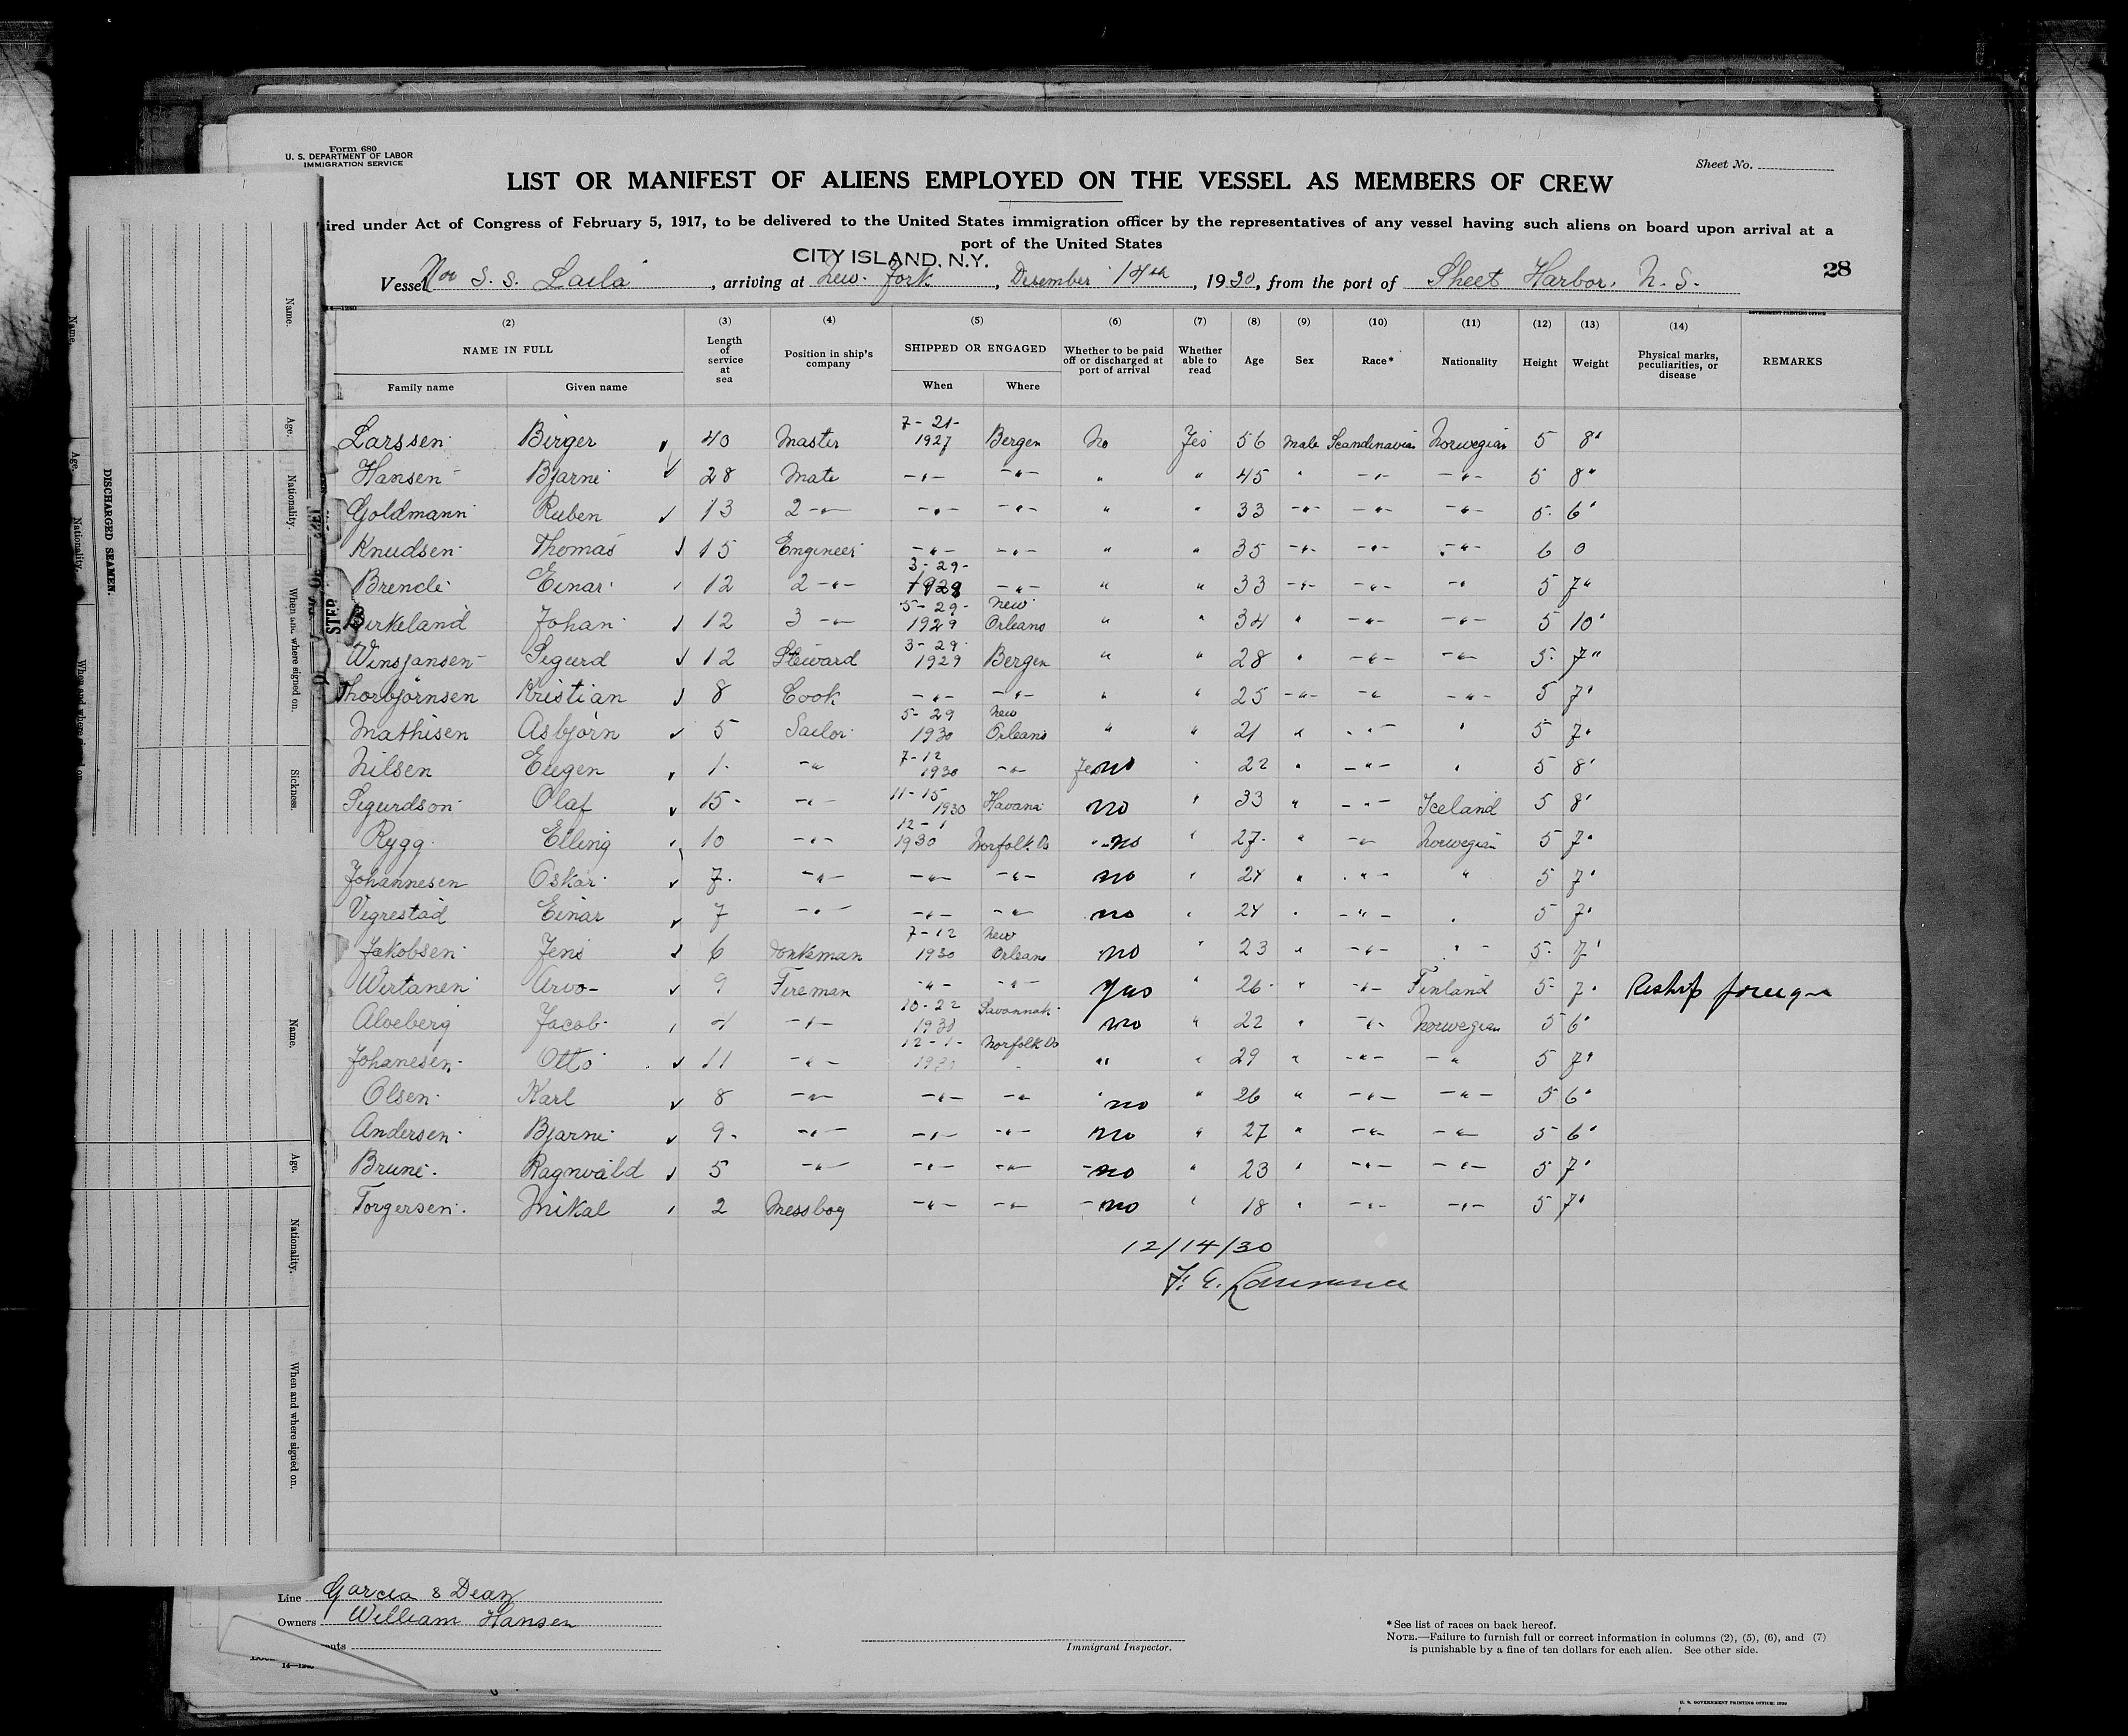 Form 680
U. S. DEPARTMENT OF LABOR
IMMIGRATION SERVICE
Sheet No.
LIST OR MANIFEST OF ALIENS EMPLOYED ON THE VESSEL AS MEMBERS OF CREW
ired under Act of Congress of February 5, 1917, to be delivered to the United States immigration officer by the representatives of any vessel having such aliens on board upon arrival at a
port of the United States
CITY ISLAND, N.Y.
28
Vessel Nor S. S. Laila, arriving at New York, Desember 14th, 1930, from the port of Sheet Harbor, N. S.
14—1240
GOVERNMENT PRINTING OFFICE
(2) (3) (4) (5) (6) (7) (8) (9) (10) (11) (12) (13) (14)
NAME IN FULL Length of service at sea Position in ship's company SHIPPED OR ENGAGED Whether to be paid off or discharged at port of arrival Whether able to read Age Sex Race* Nationality Height Weight Physical marks, peculiarities, or disease REMARKS
Family name Given name When Where
Larssen Birger 40 Master 7-21-1927 Bergen No Yes 56 Male Scandinavian Norwegian 5 8"
Hansen Bjarne 28 Mate -"- -"- " " 45 " -"- -"- 5 8"
Goldmann Ruben 13 2 -"- -"- -"- " " 33 -"- -"- -"- 5 6"
Knudsen Thomas 15 Engineer -"- -"- " " 35 -"- -"- -"- 6 0
Brende Einar 12 2 -"- 3-29-1929 -"- " " 33 -"- -"- -" 5 7"
Birkeland Johan 12 3 -"- 5-29-1929 New Orleans " " 34 " -"- -"- 5 10"
Winsjansen Sigurd 12 Steward 3-29-1929 Bergen " " 28 " -"- -"- 5 7"
Thorbjørnsen Kristian 8 Cook -"- -"- " " 25 -"- -" -"- 5 7"
Mathisen Asbjørn 5 Sailor 5-29 1930 New Orleans " " 21 " -"- " 5 7"
Nilsen Eugen 1 -" 7-12 1930 -"- no " 22 " -"- " 5 8"
Sigurdson Olaf 15 -"- 11-15 1930 Havana no " 33 " -"- Iceland 5 8"
Rygg Elling 10 -"- 12-1 1930 Norfolk Va no " 27 " -"- Norwegian 5 7"
Johannesen Oskar 7 -"- -"- -"- no " 24 " -"- " 5 7"
Vegrestad Einar 7 -"- -"- -"- no " 24 " -"- " 5 7"
Jakobsen Jens 6 Donkeman 7-12 1930 New Orleans no " 23 " -"- "- 5 7"
Wirtanen Arvo 9 Fireman -"- -"- yes " 26 " -"- Finland 5 7" Reship foreign
Aloeberg Jacob 4 -"- 10-22 1930 Savannah no " 22 " -"- Norwegian 5 6"
Johanesen Otto 11 -"- 12-1-1930 Norfolk Va " " 29 " -"- -" 5 7"
Olsen Karl 8 -"- -"- -"- no " 26 " -"- -"- 5 6"
Andersen Bjarne 9 -"- -"- -"- no " 27 " -"- -"- 5 6"
Brune Ragnvald 5 -"- -"- -"- no " 23 " -"- -"- 5 7"
Torgersen Mikal 2 Messboy -"- -"- no " 18 " -"- -"- 5 7"
12/14/30
F. E. Lawrence
Line Garcia & Deaz
Owners William Hansen
ents
14—1240
Immigrant Inspector.
*See list of races on back hereof.
NOTE.—Failure to furnish full or correct information in columns (2), (5), (6), and (7)
is punishable by a fine of ten dollars for each alien. See other side.
U. S. GOVERNMENT PRINTING OFFICE: 1930
DISCHARGED SEAMEN.
Name.
Age.
Nationality.
When and where signed on.
Sickness.
Name.
Age.
Nationality.
When and where signed on.
Name.
Age.
Nationality.